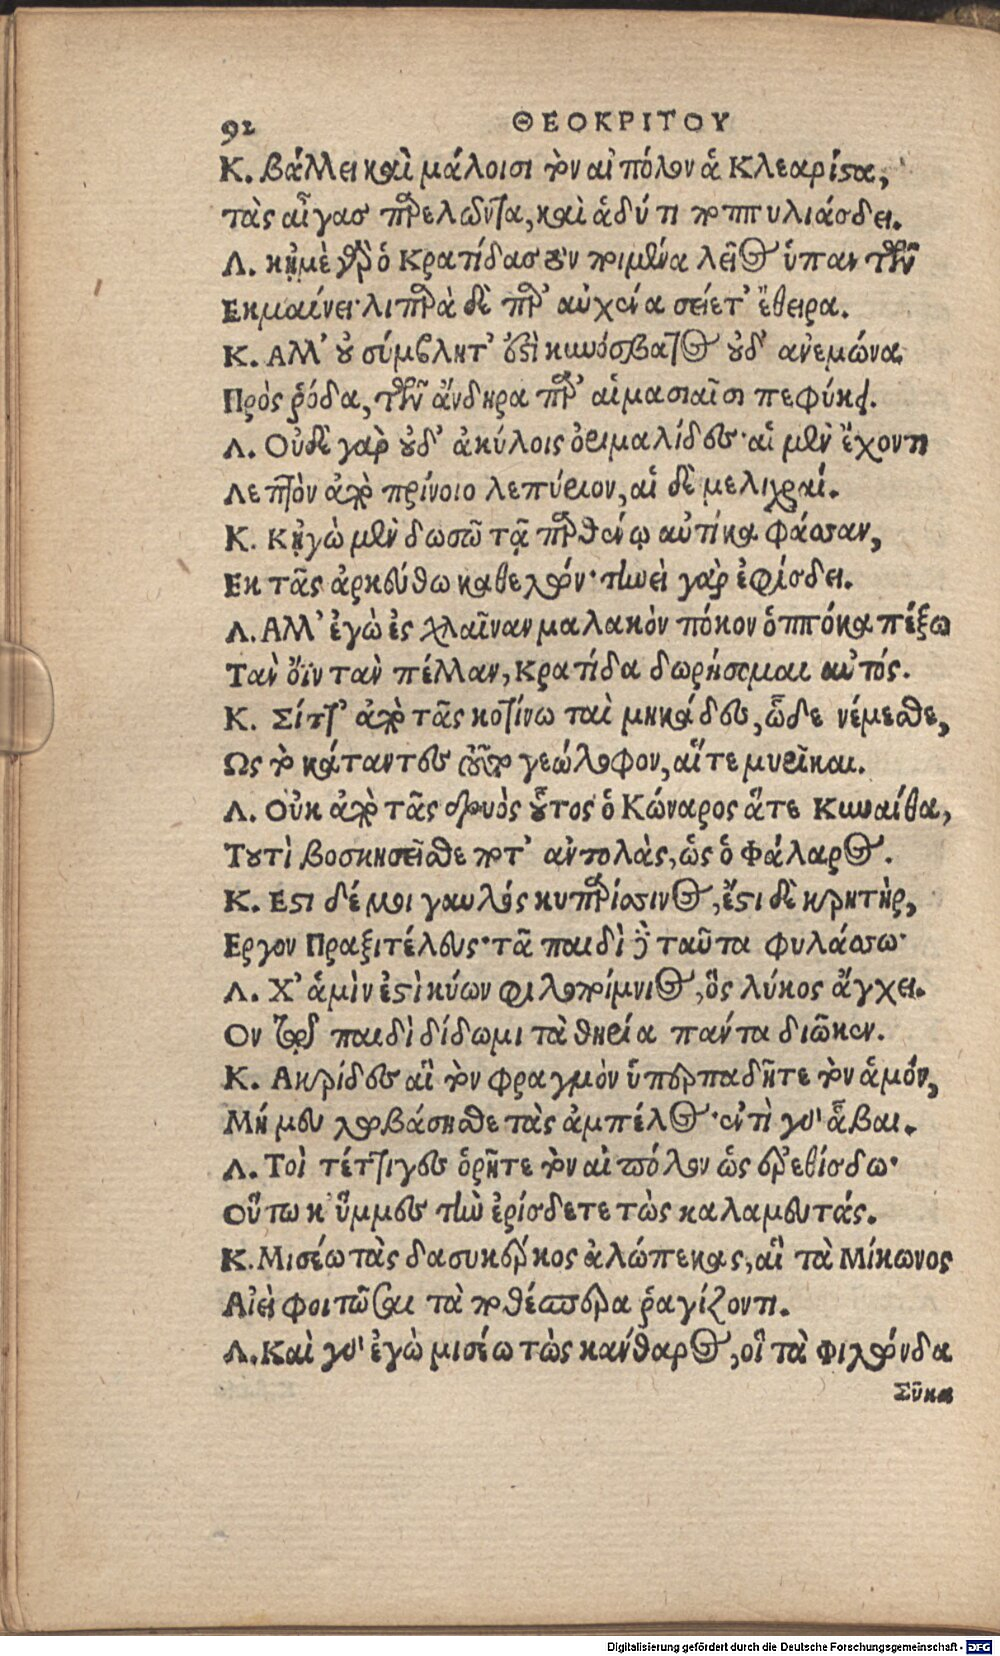 92 ΘΕΟΚΡΙΤΟΥ
Κ. βάλλει καὶ μάλοισι τὸν αἰπόλον ἁ Κλεαρίστα,
τὰς αἶγασ παρελῶντα, καὶ ἁδύ τι ποππυλιάσδει.
Λ. κἠμὲ γὰρ ὁ Κρατίδασ τὸν ποιμένα λεῖος ὑπαντῶν
Εκμαίνει· λιπαρὰ δὲ παρ' αὐχένα σείετ' ἔθειρα.
Κ. Αλλ' οὐ σύμβλητ' ἐστὶ κυνόσβατος οὐδ' ανεμώνα
Πρὸς ῥόδα, τῶν ἄνδηρα παρ' αἱμασιαῖσι πεφύκει.
Λ. Οὐδὲ γὰρ οὐδ' ἀκύλοις ὀριμαλίδες· αἱ μὲν ἔχοντι
Λεπτὸν ἀπὸ πρίνοιο λεπύριον, αἱ δὲ μελιχραί.
Κ. Κἠγὼ μὲν δωσῶ τᾷ παρθένῳ αὐτίκα φάσσαν,
Εκ τᾶς ἀρκεύθω καθελών· τηνεὶ γὰρ ἐφίσδει.
Λ. Αλλ' ἐγὼ ἐς χλαῖναν μαλακὸν πόκον ὁππόκα πέξω
Ταν ὄϊν ταν πέλλαν, Κρατίδα δωρήσομαι αὐτός.
Κ. Σίττ' ἀπὸ τᾶς κοτίνω ταὶ μηκάδες, ὧδε νέμεσθε,
Ως τὸ κάταντες τοῦτο γεώλοφον, αἵτε μυρῖκαι.
Λ. Οὐκ ἀπὸ τᾶς δρυὸς οὗτος ὁ Κώναρος ἅτε Κυναίθα,
Τουτὶ βοσκησεῖσθε ποτ' αντολὰς, ὡς ὁ Φάλαρος.
Κ. Εστι δέ μοι γαυλὸς κυπαρίσσινος, ἔστι δὲ κρητὴρ,
Εργον Πραξιτέλευς· τᾶ παιδὶ δὲ ταῦτα φυλάσσω·
Λ. Χ' ἁμὶν ἐστὶ κύων φιλοποίμνιος, ὃς λύκος ἄγχει.
Ον τῷ παιδὶ δίδωμι τὰ θηρία παντα διῶκεν.
Κ. Ακρίδες αἳ τὸν φραγμὸν ὑπερπαδῆτε τὸν ἁμόν,
Μή μευ λωβάσησθε τὰς ἀμπέλος· ἐντὶ γὰρ ἇβαι.
Λ. Τοὶ τέττιγες ὁρῆτε τὸν αἰπόλον ὡς ἐρεθίσδω·
Οὕτω κ' ὔμμες τηνὼ ἐρίσδετε τὼς καλαμευτάς.
Κ. Μισέω τὰς δασυκέρκος ἀλώπεκας, αἳ τὰ Μίκωνος
Αἰεὶ φοιτῶσαι τὰ ποθέσπερα ῥαγίζοντι.
Λ. Καὶ γὰρ ἐγὼ μισέω τὼς κανθάρος, οἳ τὰ Φιλώνδα
Σῦκα
Digitalisierung gefördert durch die Deutsche Forschungsgemeinschaft - DFG